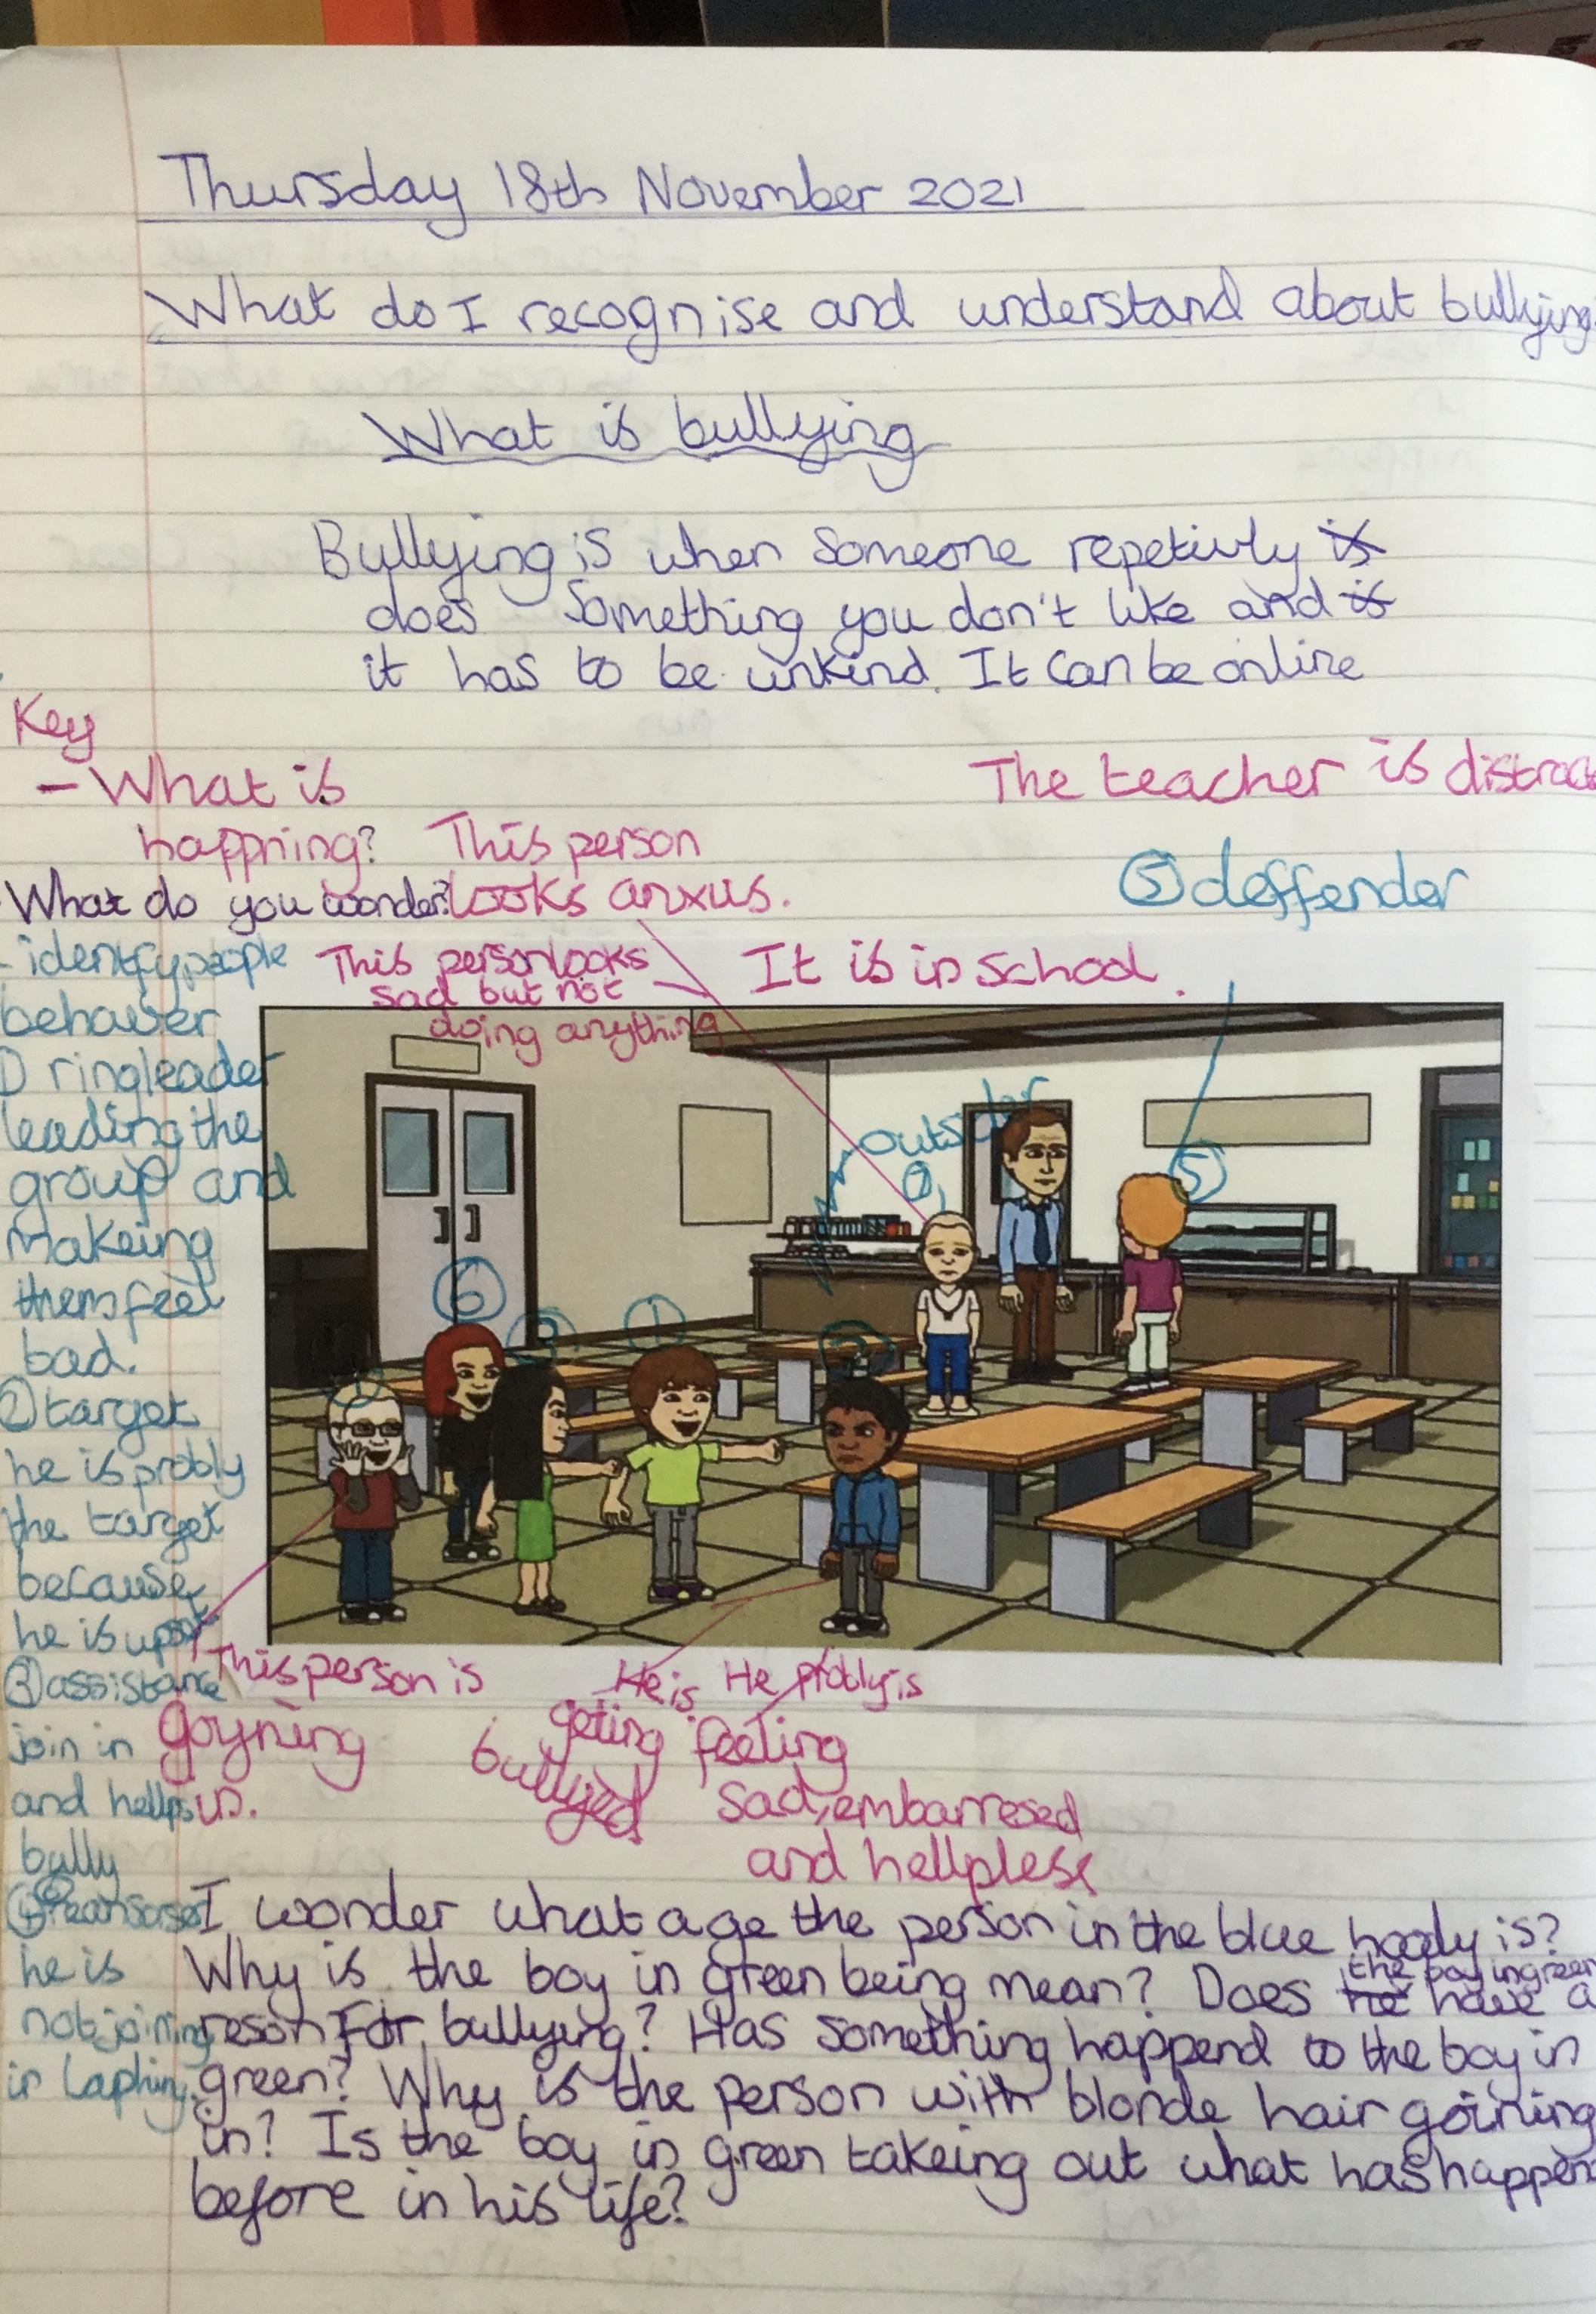 Thursday 18th November 2021
What do I recognise and understand about bullying
What is bullying
Bullying is when someone repetivly is
does something you don't like and is
it has to be unkind. It can be online
Key
- What is
happning?
What do you wonder?
- identfy people
behaver
ringleader
leading the
group and
makeing
them feel
bad.
② target
he is probly
the target
because
he is upset
③ assistance
join in
and hellps
bully
④
he is
not joining
in laphing.
The teacher is distrac
This person
looks anxus.
⑤ deffender
This person looks
sad but not
doing anything
It is in school.
outsider
⑤
⑥
①
This person is
goyning
in.
He is
geting
bullyed
He probly is
feeling
sad, embarresed
and hellpless
I wonder what age the person in the blue hoody is?
Why is the boy in green being mean? Does he the boy in green have a
reson for bullying? Has something happend to the boy in
green? Why is the person with blonde hair goining
in? Is the boy in green takeing out what has happen
before in his life?